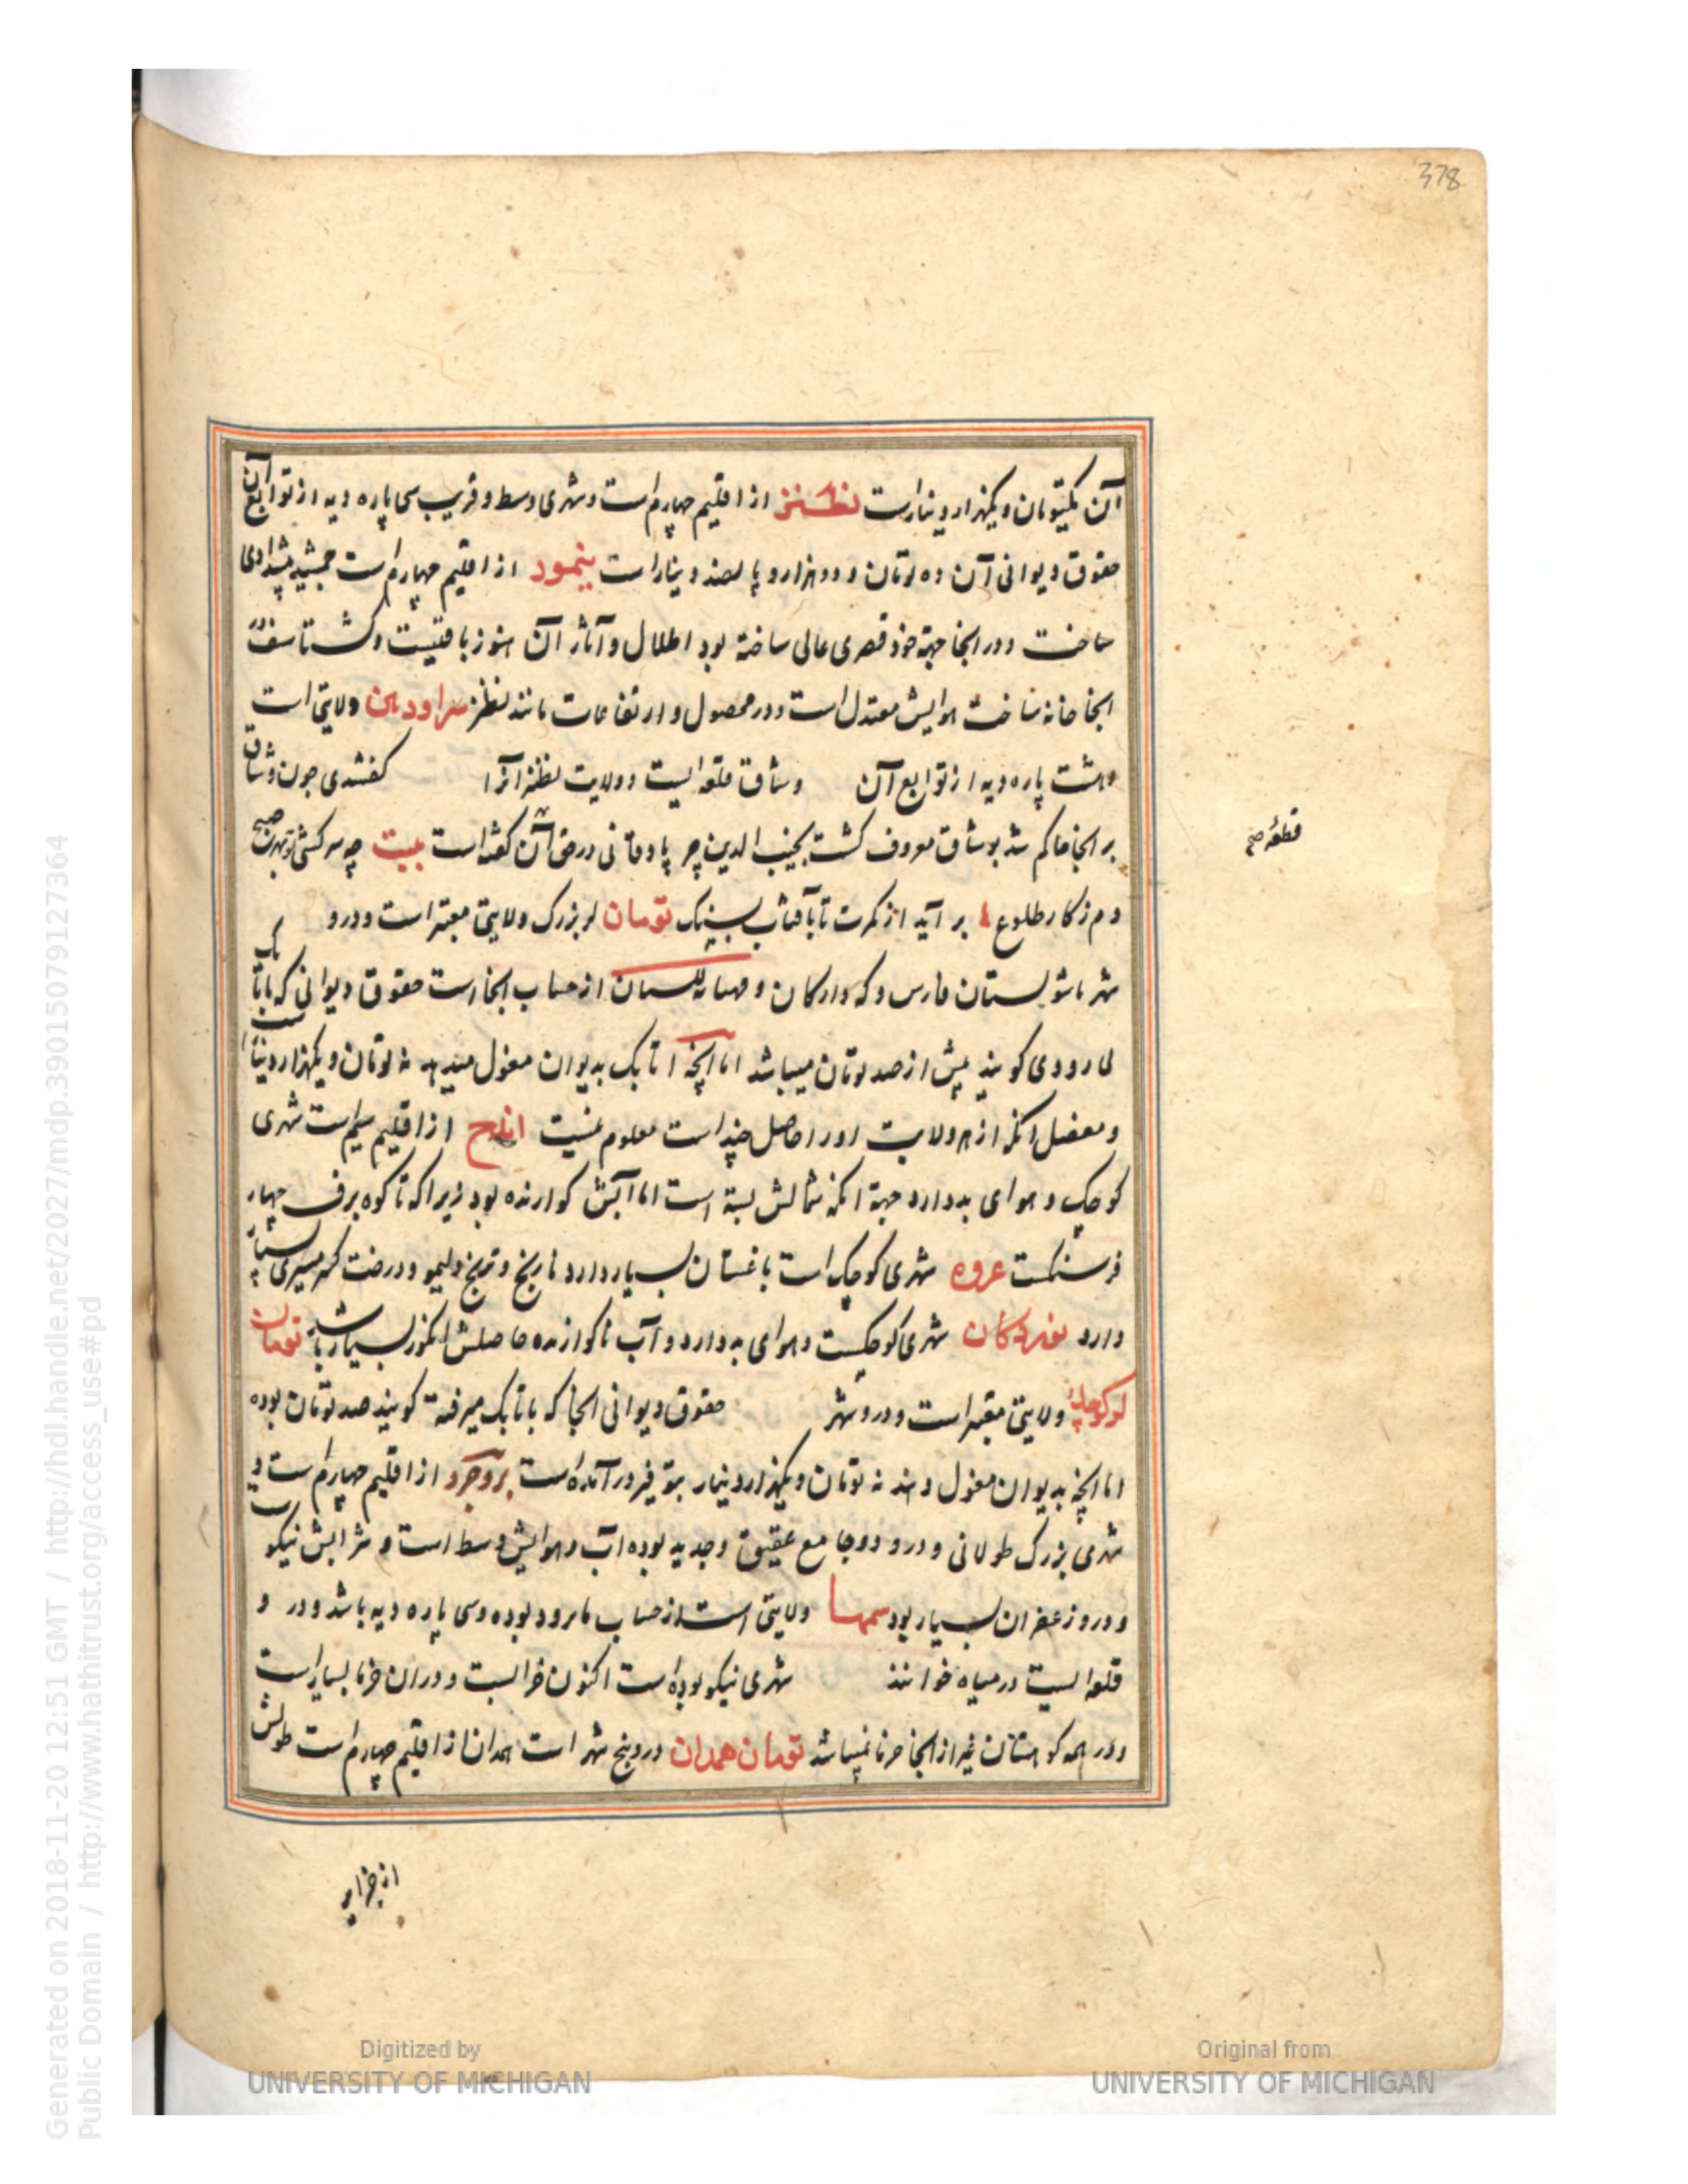 378
آن یکتومان و یکهزار دینارست نطنز از اقلیم چهارم است و شهری وسط و قریب سی پاره دیه از توابع آن
حقوق دیوانی آن ده تومان و دو هزار و پانصد دینار است نیمور از اقلیم چهارم است جمشید پیشدادی
ساخت و در انجا جهة خود قصری عالی ساخته بود اطلال و آثار آن هنوز باقیست و کشتاسف در
انجا خانه ساخت هوایش معتدل است و در محصول و ارتفاعات مانند نطنز ولایتی است
و هشت پاره دیه از توابع آن وشاق قلعه ایست و ولایت نطنز آنرا کفتندی چون وشاق
بر انجا حاکم شد بوشاق معروف کشت نجیب الدین جرپادقانی در حق آن کفته است بیت چه سرکشی تو که هر صبح
دم ز کار طلوع بر آید از کمرت تا بآفتاب سنک تومان لر بزرک ولایتی معتبر است و درو
شهرها شولستان فارس و از حساب انجاست حقوق دیوانی که باتابک
می رود کویند بیش از صد تومان میباشد اما انچه اتابک بدیوان مغول میدهد نه تومان و یکهزار دینار است
و مفصل انکه از هر ولایت او را حاصل چند است معلوم نیست ایذج از اقلیم سیم است شهری
کوچک و هوای بد دارد جهة انکه شمالش بسته است اما آبش کوارنده بود زیرا که تا کوه برف چهار
فرسنکست عروه شهری کوچک است باغستان بسیار دارد نارنج و ترنج و لیمو و درخت کرمسیری بسیار
دارد شهری کوچکست و هوای بد دارد و آب ناکوارنده حاصلش انکور بسیار باشد تومان
لر کوچک ولایتی معتبر است و درو شهر حقوق دیوانی انجا که باتابک میرفته کویند صد تومان بوده
اما انچه بدیوان مغول دهند نه تومان و یکهزار دینار بتوفیر در آمده است بروجرد از اقلیم چهارم است و
شهری بزرک طولانی و درو دو جامع عتیق و جدید بوده آب و هوایش وسط است و شرابش نیکو
و درو زعفران بسیار بود ولایتی است از حساب مانرود بوده و سی پاره دیه باشد و در و
قلعه ایست درسیاه خوانند شهری نیکو بوده است اکنون خرابست و در آن خرما بسیار است
و در همه کوهستان غیر از انجا خرما نمیباشد تومان همدان درو پنج شهر است همدان از اقلیم چهارم است طولش
قطعه صح
از جزایر
Generated on 2018-11-20 12:51 GMT / http://hdl.handle.net/2027/mdp.39015079127364
Public Domain / http://www.hathitrust.org/access_use#pd
Digitized by
UNIVERSITY OF MICHIGAN
Original from
UNIVERSITY OF MICHIGAN